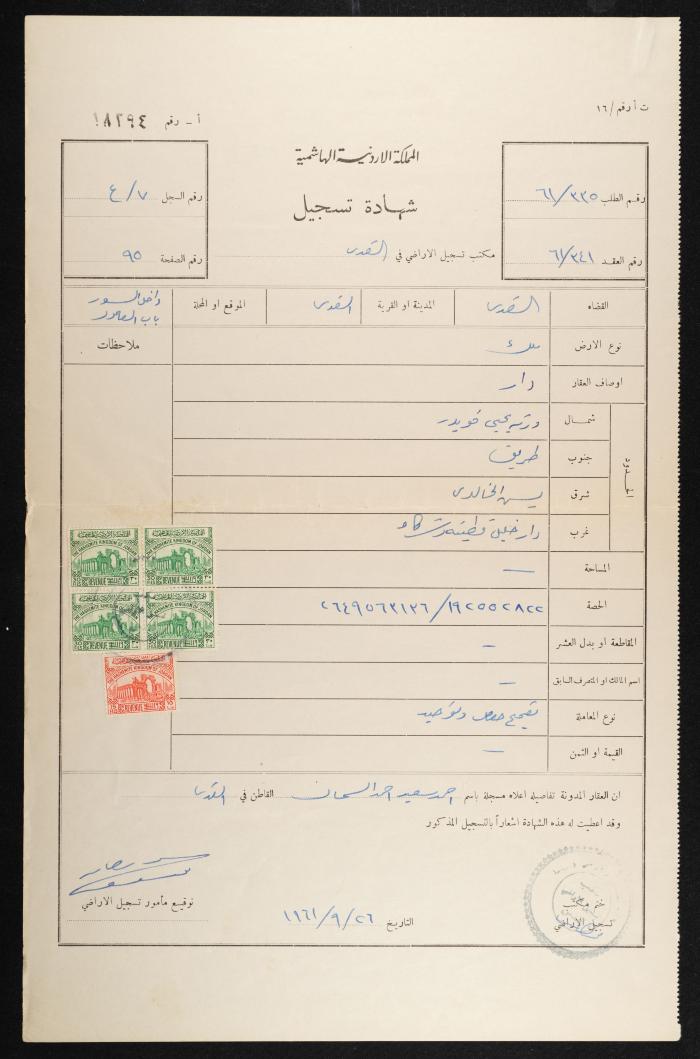 ت أ رقم /١٦
أ - رقم ١٨٢٩٤١
المملكة الاردنية الهاشمية
شهادة تسجيل
مكتب تسجيل الاراضي في القدس
رقم الطلب ٦١/٣٣٥
رقم العقد ٦١/٣٤١
رقم السجل ٤/٧
رقم الصفحة ٩٥
القضاء القدس المدينة او القرية القدس الموقع او المحلة داخل السور
باب العامود
نوع الارض ملك
ملاحظات
اوصاف العقار دار
الحدود
شمال ورثة يحيى خويدر
جنوب طريق
شرق يسن الخالدي
غرب دار خليل قطينة
المساحة —
الحصة ٢٦٤٩٥٦٣١٣٦/١٩٢٥٥٢٨٢٢
المقاطعة او بدل العشر —
اسم المالك او المتصرف السابق —
نوع المعاملة تصحيح حصص وتوحيد
القيمة او الثمن —
THE HASHEMITE KINGDOM OF JORDAN
REVENUE
ان العقار المدونة تفاصيله اعلاه مسجلة باسم احمد سعيد احمد السمان القاطن في القدس
وقد اعطيت له هذه الشهادة اشعاراً بالتسجيل المذكور
توقيع مأمور تسجيل الاراضي
التاريخ ١٩٦١/٩/٢٦
ختم مكتب
تسجيل الاراضي